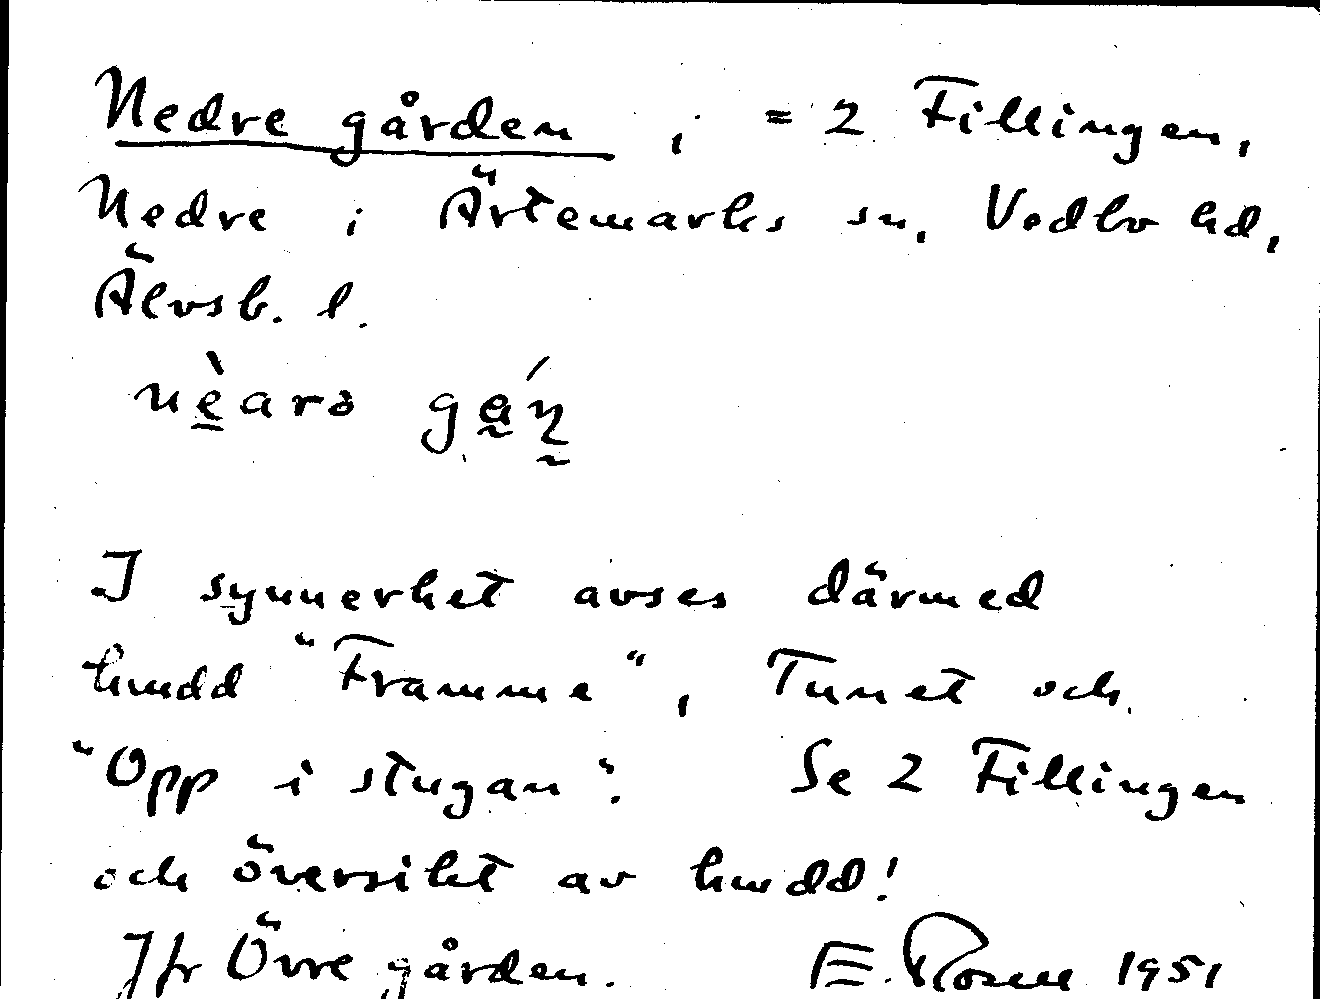 Nedre gården, = 2 Fillingen,
Nedre i Ärtemarks sn, Vedbo hd,
Älvsb. l.
I synnerhet avses därmed
hmdd "Framme", Tunet och
"Opp i stugan". Se 2 Fillingen
och översikt av hmdd!
Jfr Övre gården. E. Rosell 1951